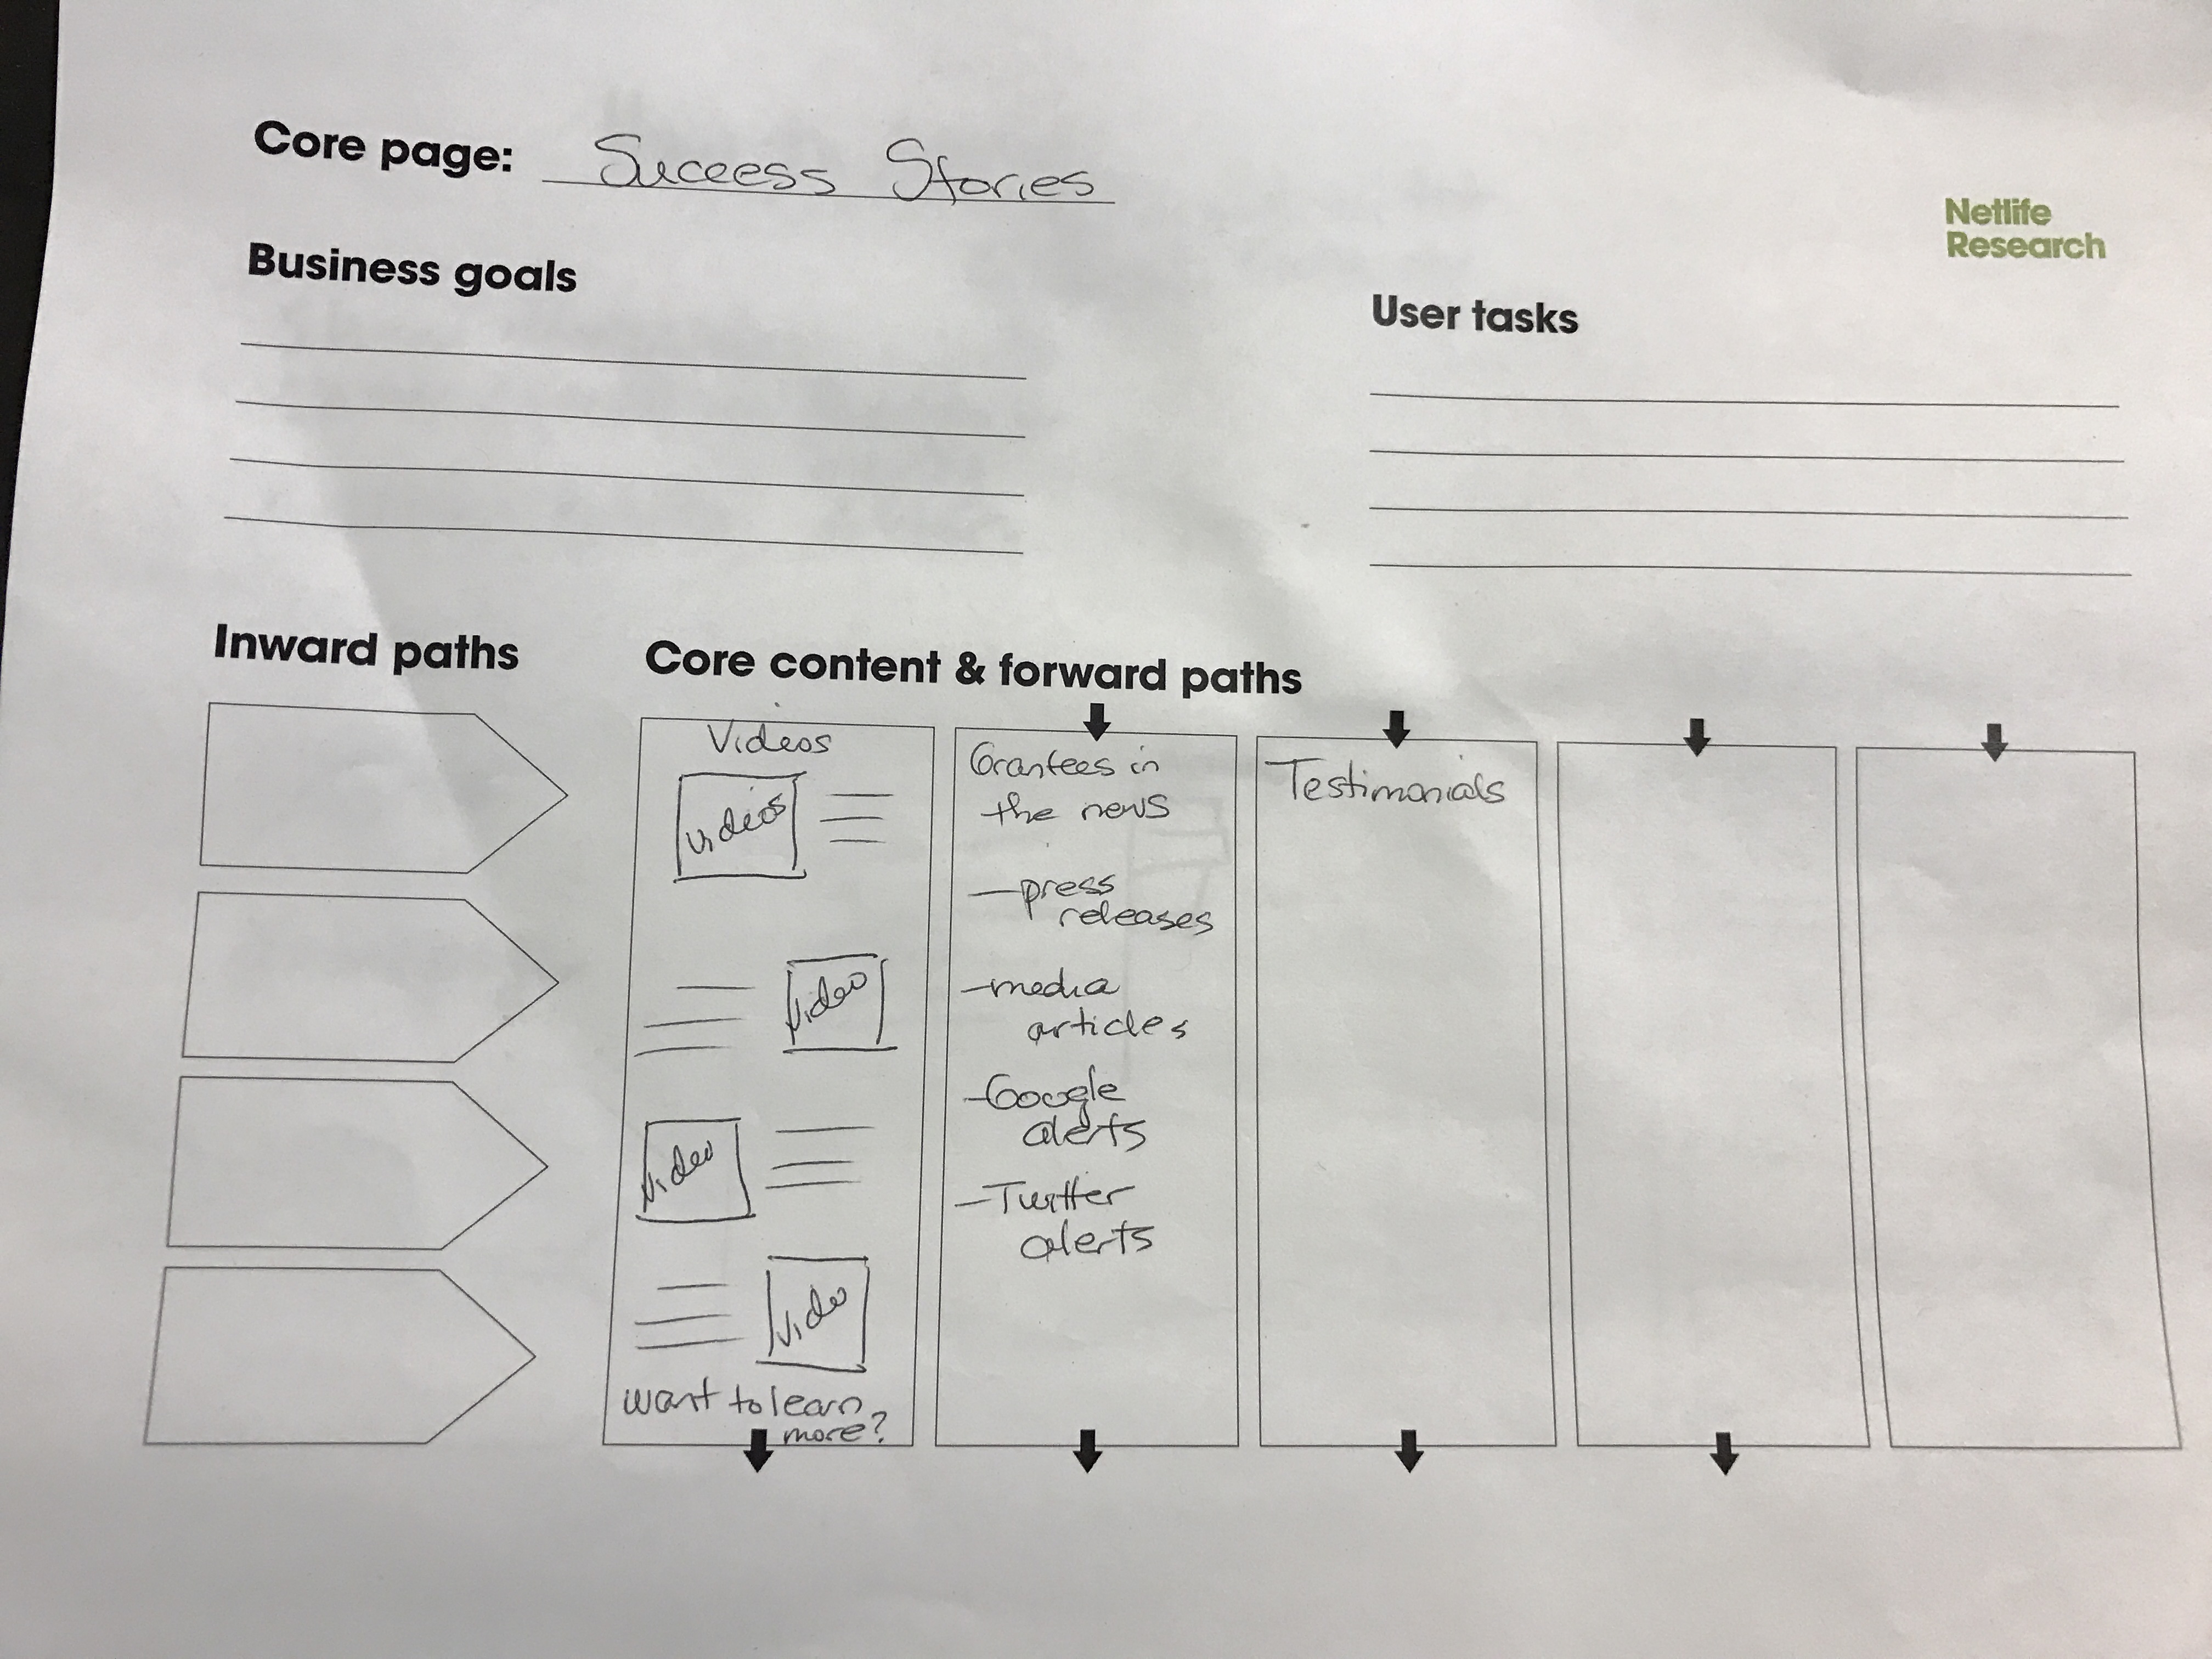 Core page: Success Stories
Netlife
Research
Business goals
User tasks
Inward paths
Core content & forward paths
Videos
Videos
Video
Video
Video
want to learn
more?
Grantees in
the news
-press
releases
-media
articles
-Google
alerts
-Twitter
alerts
Testimonials